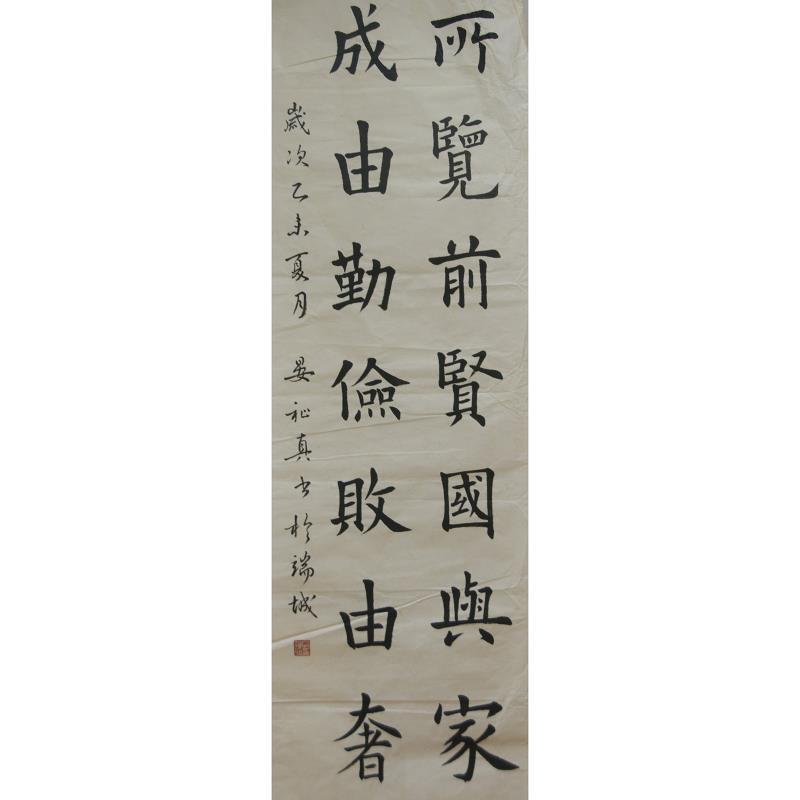 所覽前賢國與家
成由勤儉敗由奢
歲次乙未夏月 晏祉真书於端城